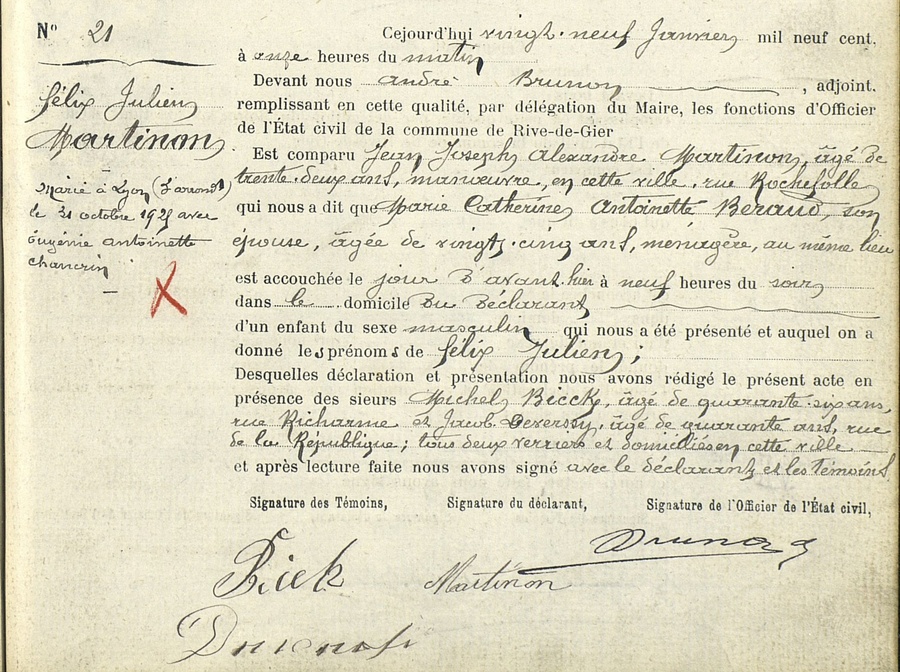 N° 21
Félix Julien
Martinon
Marié à Lyon (3e arrondt)
le 31 octobre 1925 avec
Eugénie Antoinette
Chancrin
Cejourd'hui vingt-neuf Janvier mil neuf cent.
à onze heures du matin
Devant nous André Brunon, adjoint.
remplissant en cette qualité, par délégation du Maire, les fonctions d'Officier
de l'État civil de la commune de Rive-de-Gier
Est comparu Jean Joseph Alexandre Martinon, âgé de
trente-deux ans, manœuvre, en cette ville, rue Rochefolle
qui nous a dit que Marie Catherine Antoinette Beraud, son
épouse, âgée de vingt-cinq ans, ménagère, au même lieu
est accouchée le jour d'avant-hier à neuf heures du soir
dans le domicile du déclarant
d'un enfant du sexe masculin qui nous a été présenté et auquel on a
donné les prénoms de Félix Julien;
Desquelles déclaration et présentation nous avons rédigé le présent acte en
présence des sieurs Michel Bieck, âgé de quarante-six ans,
rue Richarme et Jacob, âgé de quarante ans, rue
de la République; tous deux verriers et domiciliés en cette ville
et après lecture faite nous avons signé avec le déclarant et les témoins.
Signature des Témoins, Signature du déclarant, Signature de l'Officier de l'État civil,
Brunon
Bieck Martinon